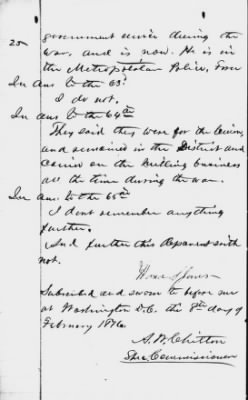 25
government service during the
war, and is now. He is in
the Metropolitan Police, Force
In Ans to the 63d
I do not.
In ans to the 64th
They said they were for the Union
and remained in the District and
Carried on the Butchering business
all the time during the war.
In Ans. to the 65th
I dont remember anything
further.
And further this deponent saith
not.
Subscribed and sworn to before me
at Washington D.C. the 8th day of
February 1876.
A. W. Chilton
Spec Commissioner